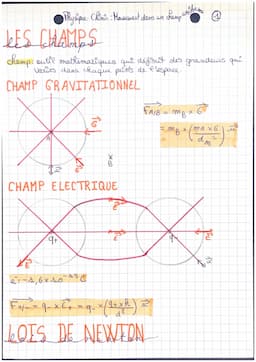 Physique Chimie : Mouvement dans un champ uniforme ①
LES CHAMPS
champ: outil mathématiques qui définit des grandeurs qui
varies dans chaque points de l'espace.
CHAMP GRAVITATIONNEL
F A/B = mB × G
= mB × (mA × G / d²) · u
A
G
B
CHAMP ELECTRIQUE
E
q+
q-
e = -1,6 × 10^-19 C
F +/- = q- × E+ = q- × (q+ × k / d²) u
LOIS DE NEWTON